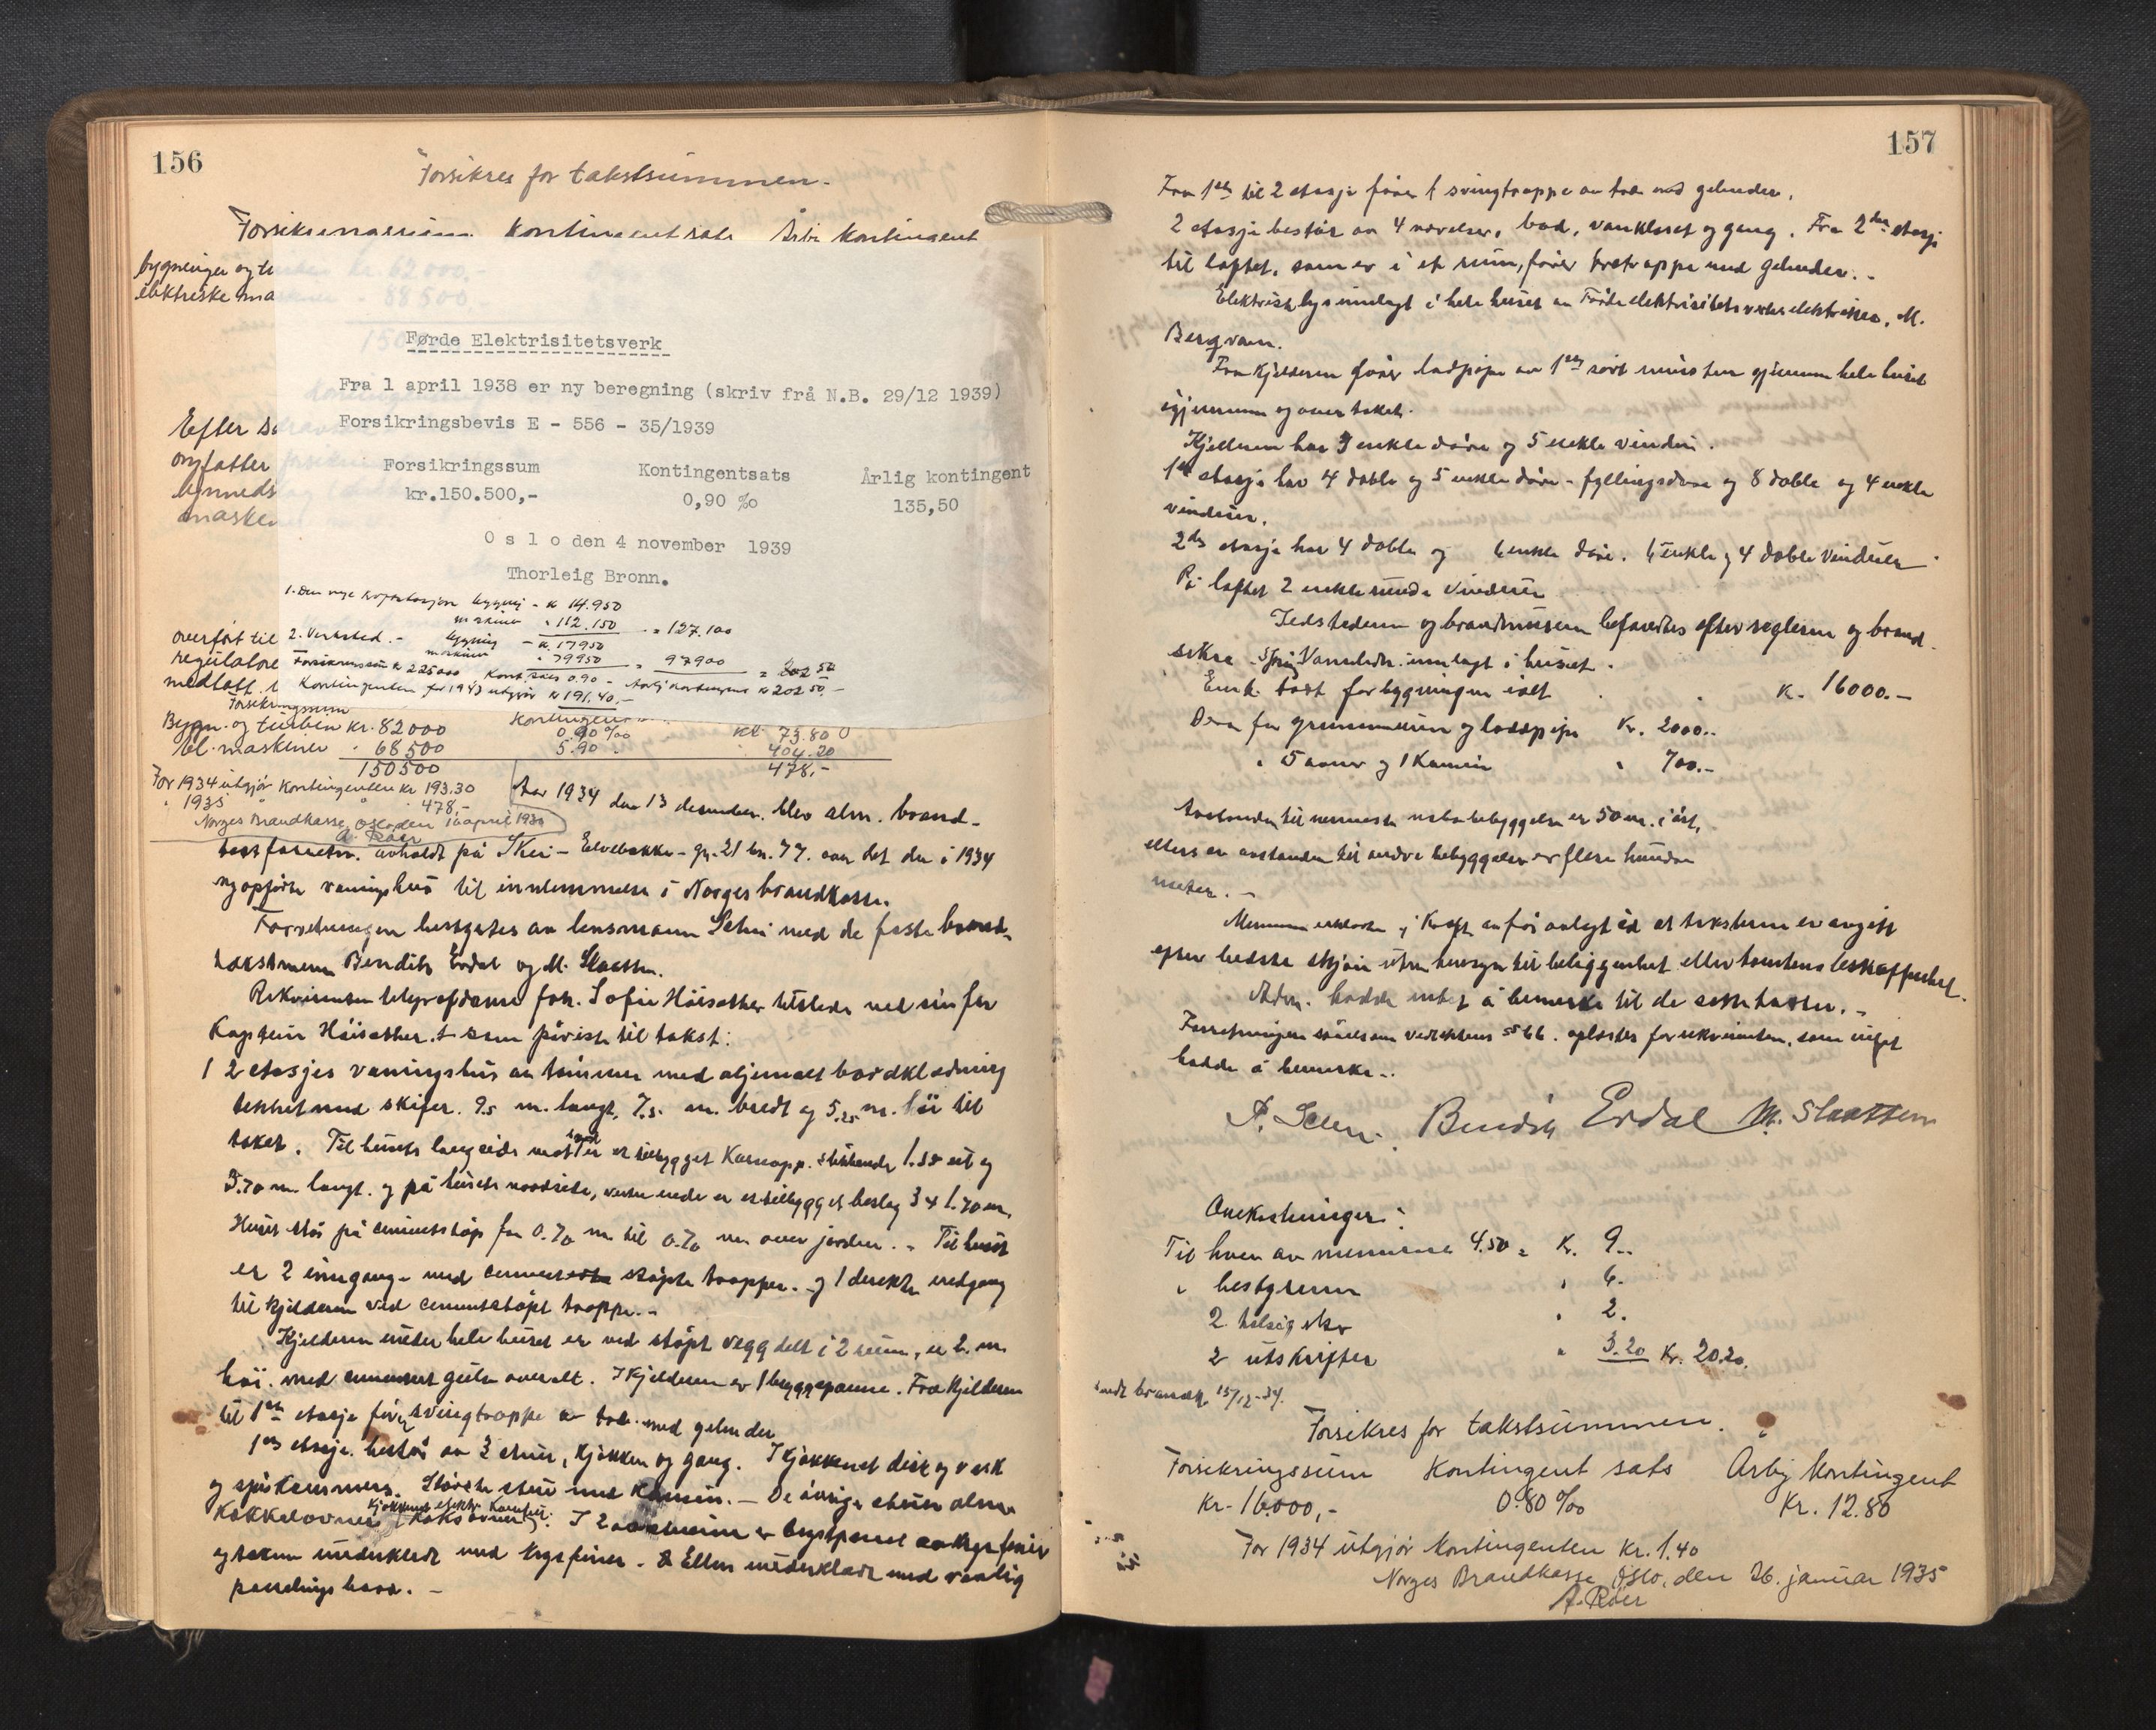 156
Forsikres for takstsummen.
Forsikringssum. Kontingentsats Årlig Kontingent
bygninger og tu
elektriske ma
Førde Elektrisitetsverk
Fra 1 april 1938 er ny beregning (skriv frå N.B. 29/12 1939)
Forsikringsbevis E - 556 - 35/1939
Efter
omfatter
Forsikringssum Kontingentsats Årlig kontingent
kr.150.500,- 0,90 ‰ 135,50
masker
O s l o den 4 november 1939
Thorleig Bronn.
1. Den nye bygning - kr 14.950
maskiner " 112.150 = 127.100
2. Verksted. - bygning - k. 17950
maskiner " 79950 = 97900
overført til
regulatore
medtatt
Forsikringssum kr 225000 Kont. sats 0.90 - Årlig kontingent kr 202.50.-
Kontingenten for 1943 utgjør kr 191.40.-
Forsikringssum
Bygn. og turbin kr. 82000 0.90 ‰ kr. 73.80
El. maskiner " 68500 5.90 " 404.20
150500 478,-
For 1934 utgjør Kontingenten kr 193.30
" 1935 " " 478,-
Norges Brandkasse, Oslo den 16 april 1935
A. Røer
Aar 1934 den 13 desember. blev alm. brand-
takstforretn. avholdt på Skei - Elvebakke - gr. 21 bn. 77. over det der i 1934
nyopførte vaningshus til innlemmelse i Norges brandkasse.
Forretningen bestyrtes av lensmann Seim med de faste brand-
takstmenn Bendik Erdal og M. Slaatten.
Rekvirenten telegrafdame frk. Sofie Høisæther tilstede ved sin far
Kaptein Høisæther. som påviste til takst:
1 2 etasjes vaningshus av tømmer med oljemalt bordklædning
tekket med skifer. 9.5 m. langt, 7.5. m. bredt og 5.25 m. høi til
taket. Til husets langside mot er et tilbygget Karnapp. stikkende 1.50 ut og
3.70 m. langt. og på husets nordside, vestre ende er et tilbygget beslag 3 x 1.70 m.
Huset står på cementstøp fra 0.70 m. til 0.70 m. over jorden. - Til huset
er 2 innganger med cement støpte trapper. og 1 direkte nedgang
til Kjelderen ved cementstøpt trappe.-
Kjelderen under hele huset er ved støpt vegg delt i 2 rum, er 2. m.
høi. med cementert gulv overalt. I Kjelderen er 1 bryggepanne. Fra Kjelderen
til 1ste etasje fører svingtrappe av tre med gelender
1ste etasje. består av 3 stuer, Kjøkken og gang. I Kjøkkenet disk og vask
og spiskammers. Største stue med Kamin. - De øvrige stuer alm.
Kakkelovner Koksovner. I 2 av stuene er brystpanel av krysfiner
og taket underklædt med krysfiner. - Ellers underklædt med vanlig
panelingsbord. -
157
Fra 1ste til 2 etasje fører 1 svingtrappe av tre med gelender.
2 etasje består av 4 værelser, bad, vankloset og gang. Fra 2den etasje
til loftet, som er i et rum, fører tretrappe med gelender. -
Elektrisk lys innlagt i hele huset av Førde elektrisitetsverks elektriker, M.
Bergvam.
Fra Kjelderen fører ladpipe av 1ste sort mursten gjennem hele huset
igjennem og over taket.
Kjelleren har 3 enkle døre og 5 enkle vinduer.
1ste etasje har 4 doble og 5 enkle døre - fyllingsdøre og 8 doble og 4 enkle
vinduer.
2den etasje har 4 doble og 6 enkle døre. 6 enkle og 4 doble vinduer
På loftet 2 enkle runde vinduer
Ildstederne og brandmurene befantes efter reglerne og brand-
sikre. Spring Vannleder innlagt i huset.
Enk. takst for bygningen ialt k. 16000.-
Derav for grunnmuren og ladepipe Kr. 2000.-
" 5 ovner og 1 Kamin " 700.-
Avstanden til nærmeste nabobebyggelse er 50 m. i øst,
ellers er avstanden til andre bebyggelser er flere hundre
meter. -
Mennene erklærte i Kraft av før avlagt ed at taksterne er avgitt
efter bedste skjøn uten hensyn til beliggenhet eller tomtens beskaffenhet.
Adm. hadde intet å bemerke til de satte takster. -
Forretningen såvelsom vedtektens § 66. oplæstes for rekvirenten, som intet
hadde å bemerke.-
P. Seim. Bendik Erdal M. Slaatten
Omkostninger:
Til hver av mennene 4.50 = Kr. 9.-
" bestyreren " 6.
2 " 2.
2 utskrifter " 3.20 Kr. 20.20.
sendt brandk. 15/12-34.
Forsikres for takstsummen.
Forsikringssum Kontingent sats Årlig Kontingent
Kr. 16.000,- 0.80 ‰ Kr. 12.80
For 1934 utgjør Kontingenten kr. 1.40
Norges Brandkasse, Oslo, den 26. januar 1935
A. Røer